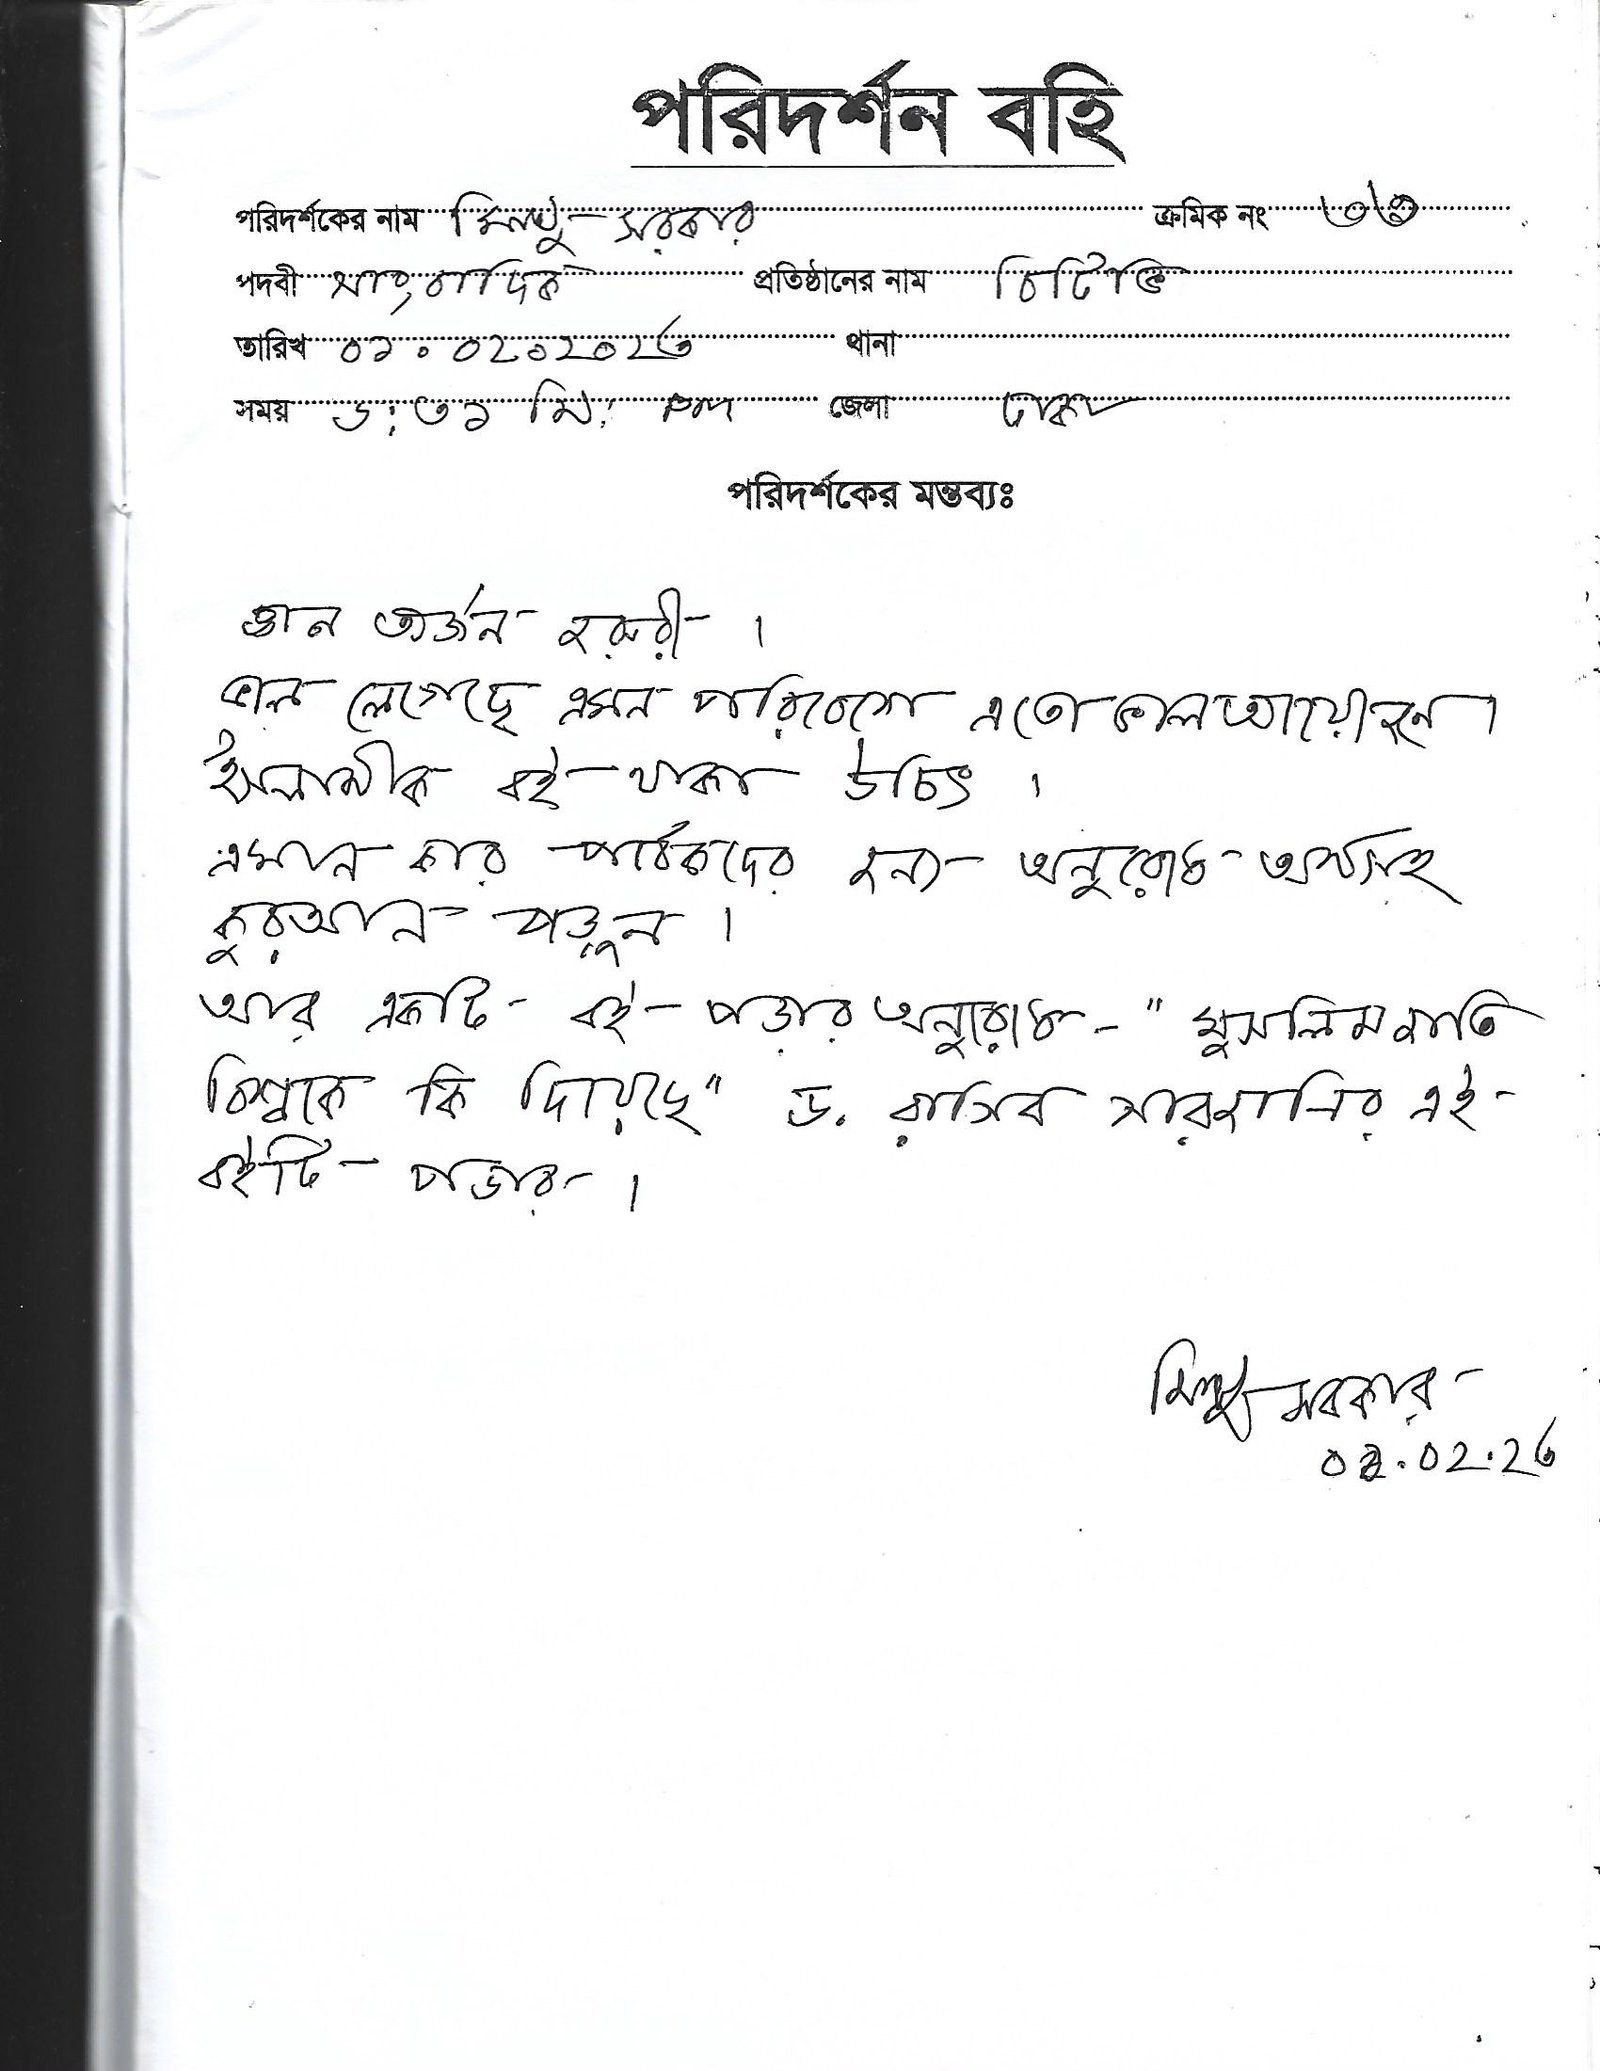 পরিদর্শন বহি
পরিদর্শকের নাম মিন্টু সরকার ক্রমিক নং ৩৬
পদবী সাংবাদিক প্রতিষ্ঠানের নাম বিটিভি
তারিখ ০১.০২.২০২৬ থানা
সময় ৬:৩১ মি: PM জেলা ঢাকা
পরিদর্শকের মন্তব্যঃ
জ্ঞান অর্জন জরুরী ।
ভাল লেগেছে এমন পরিবেশে এতো ভাল আয়োজনে ।
ইসলামীক বই থাকা উচিৎ ।
এখানকার পাঠকদের জন্য অনুরোধ অর্থসহ
কুরআন পড়ুন ।
আর একটি বই পড়ার অনুরোধ - " মুসলিম জাতি
বিশ্বকে কি দিয়েছে" ড. রাগিব সারজানির এই
বইটি পড়ার ।
মিন্টু সরকার
০১.০২.২৬